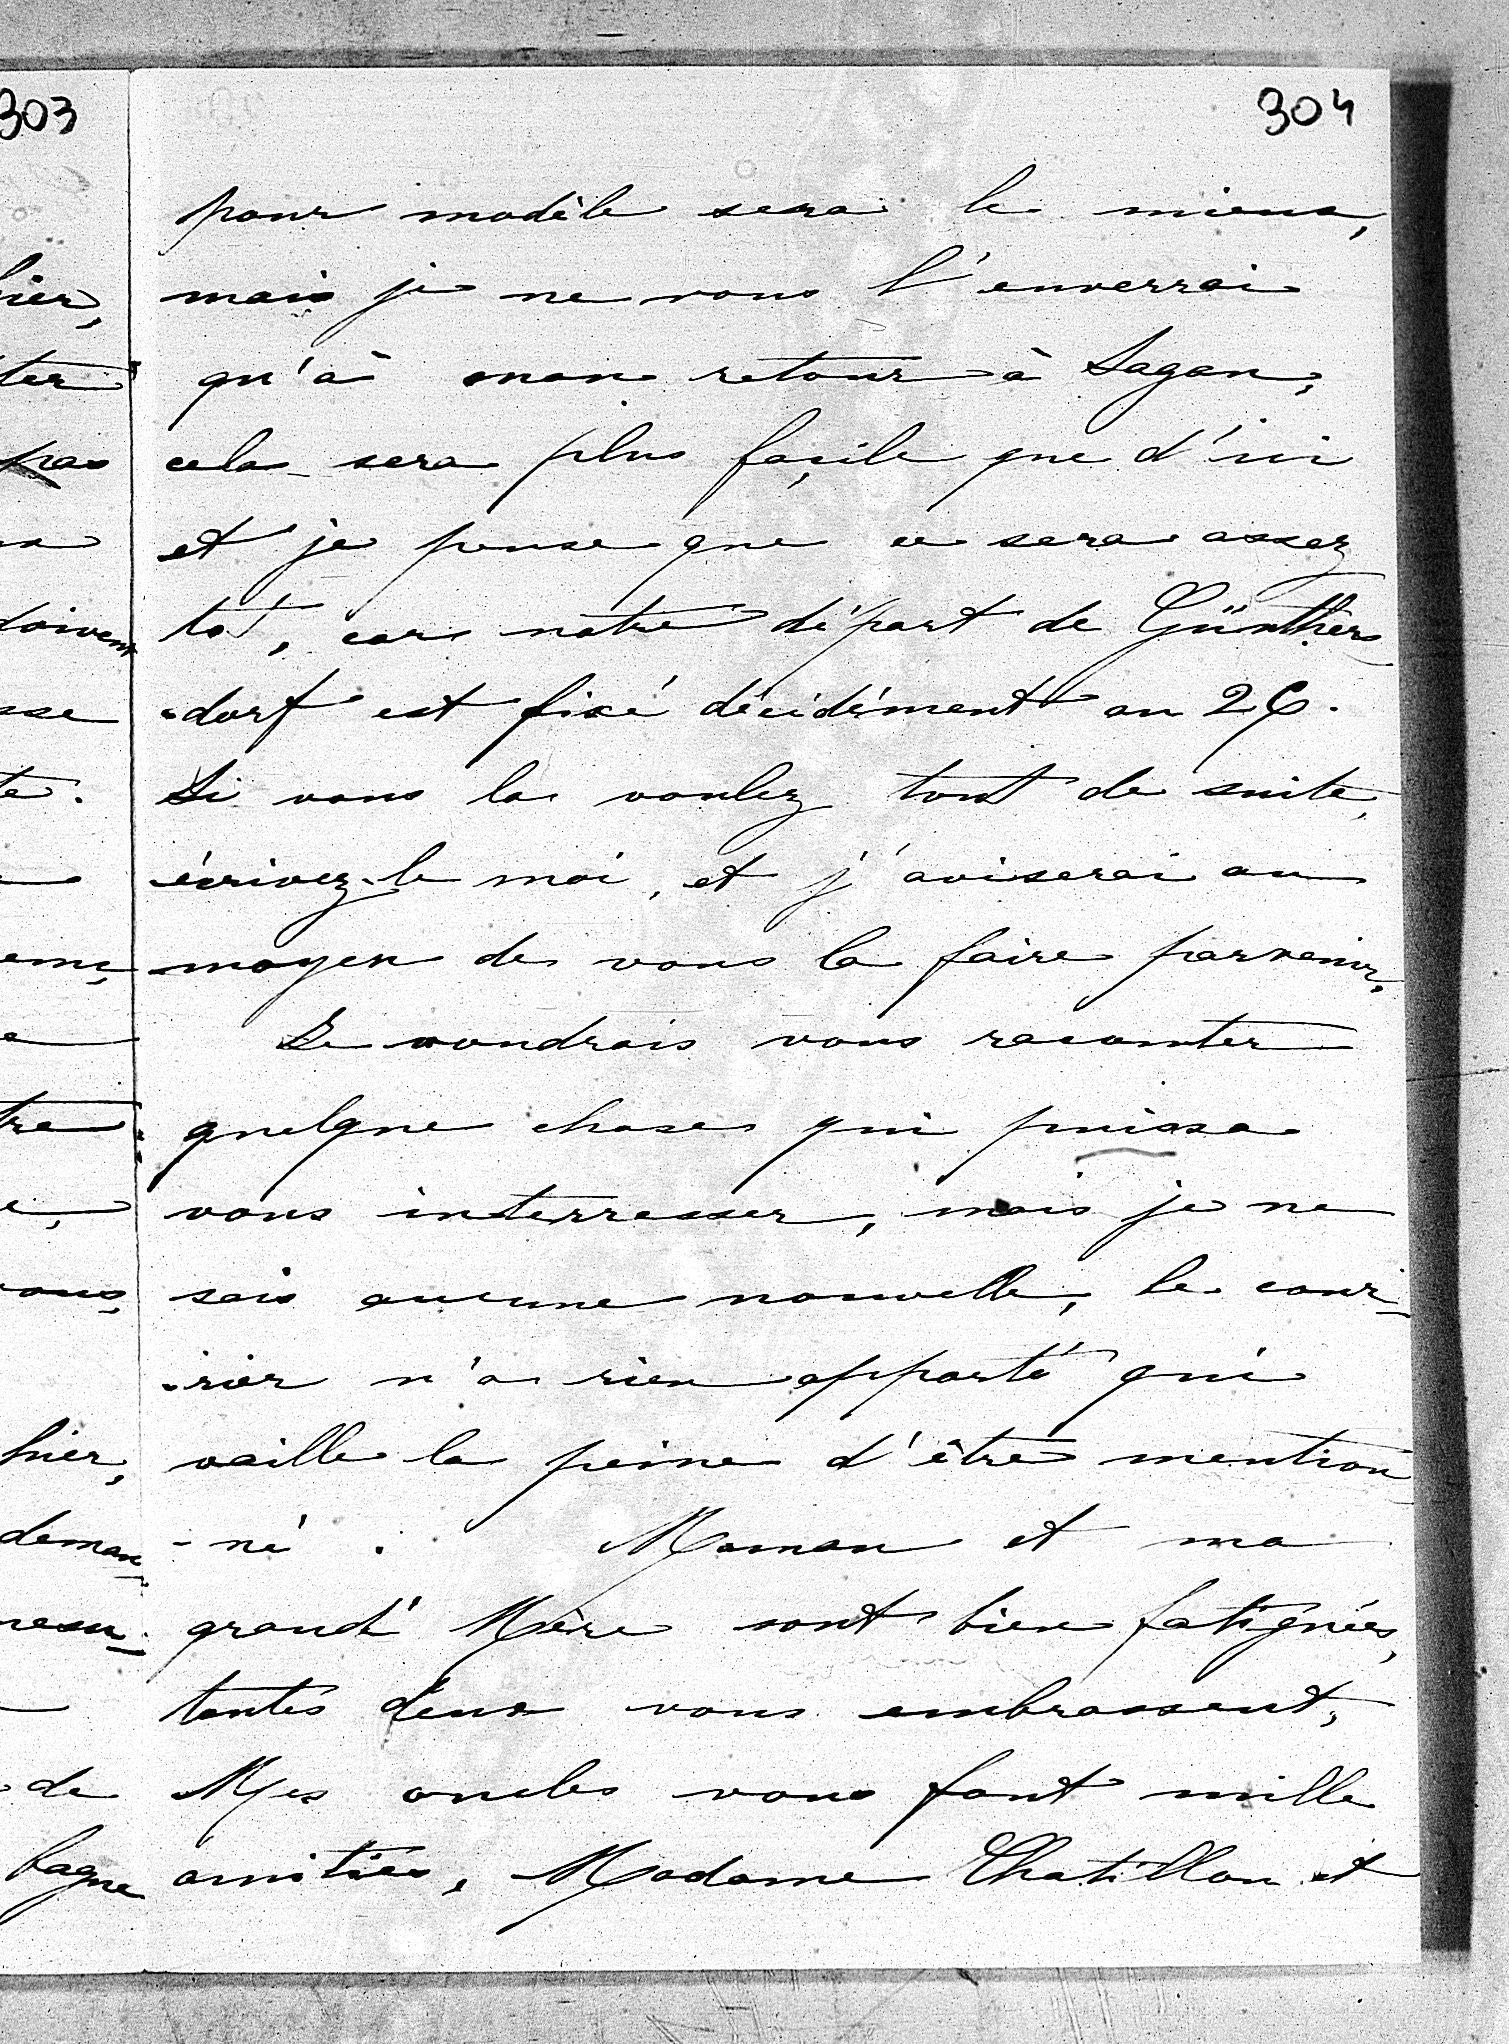 303
304
pour modèle sera le mieux,
mais je ne vous l'enverrai
qu'à mon retour à Sagan,
cela sera plus façile que d'ici
et je pense que ce sera assez
tôt, car notre départ de Günthers
-dorf est fixé décidément au 26.
Si vous la voulez tout de suite,
écrivez-le moi, et j'aviserai au
moyen de vous la faire parvenir.
Je voudrais vous raconter
quelque chose qui puisse
vous interresser, mais je ne
sais aucune nouvelle, le cour-
-rier n'a rien apporté qui
vaille la peine d'être mention
-né. Maman et ma
grand' Mère sont bien fatiguées,
toutes deux vous embrassent,
Mes oncles vous font mille
amitiés, Madame Chatillon et
hier,
ter
pas
doivent
sse
te.
tre
vous,
hier,
deman-
de
bague